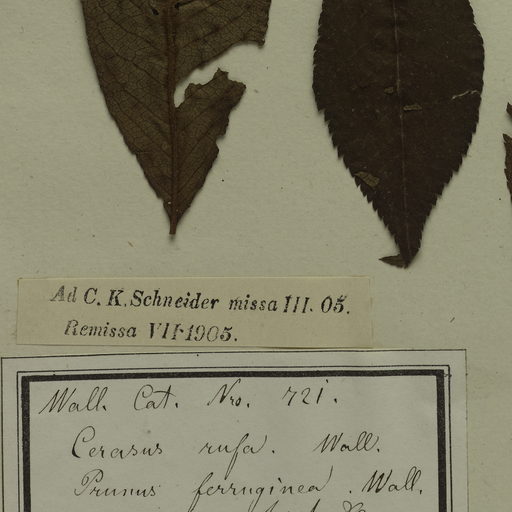 Ad C. K. Schneider missa III. 05.
Remissa VII 1905.
Wall. Cat. Nro. 721.
Cerasus rufa. Wall.
Prunus ferruginea. Wall.